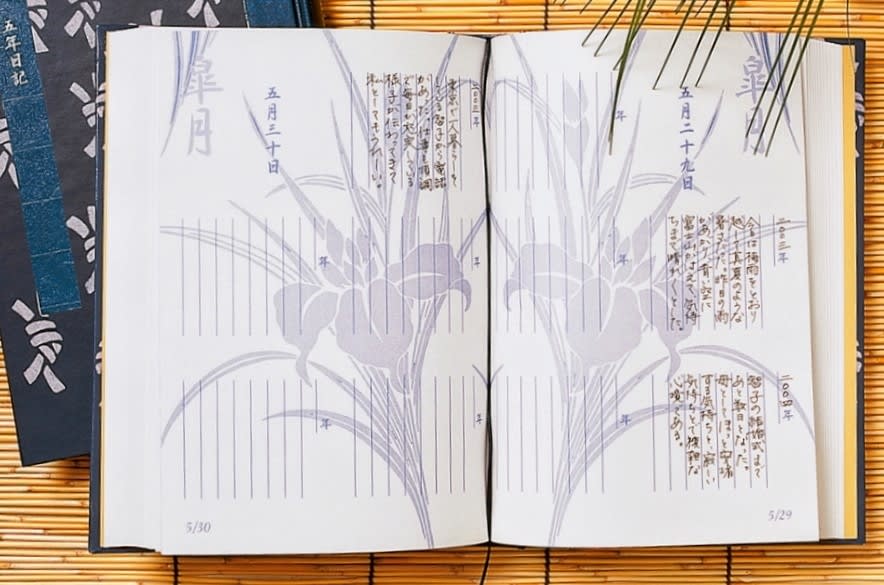 五年日記
皐月
五月二十九日
年
二〇〇三年
今日は梅雨をとおり
越して真夏のような
暑さだった。昨日の雨
があがり、青い空に
富士山がはえて気持
ちまで晴れ晴れとした。
年
二〇〇四年
智子の結婚式まで
あと数日となった。
母としてほっと安堵
する気持ちと、寂しい
気持ちとで複雑な
心境である。
年
5/29
皐月
五月三十日
いる智子から電話
があった。仕事も順調
で毎日が充実している
様子が伝わってきて
私としてもうれしい。
年
年
年
年
5/30